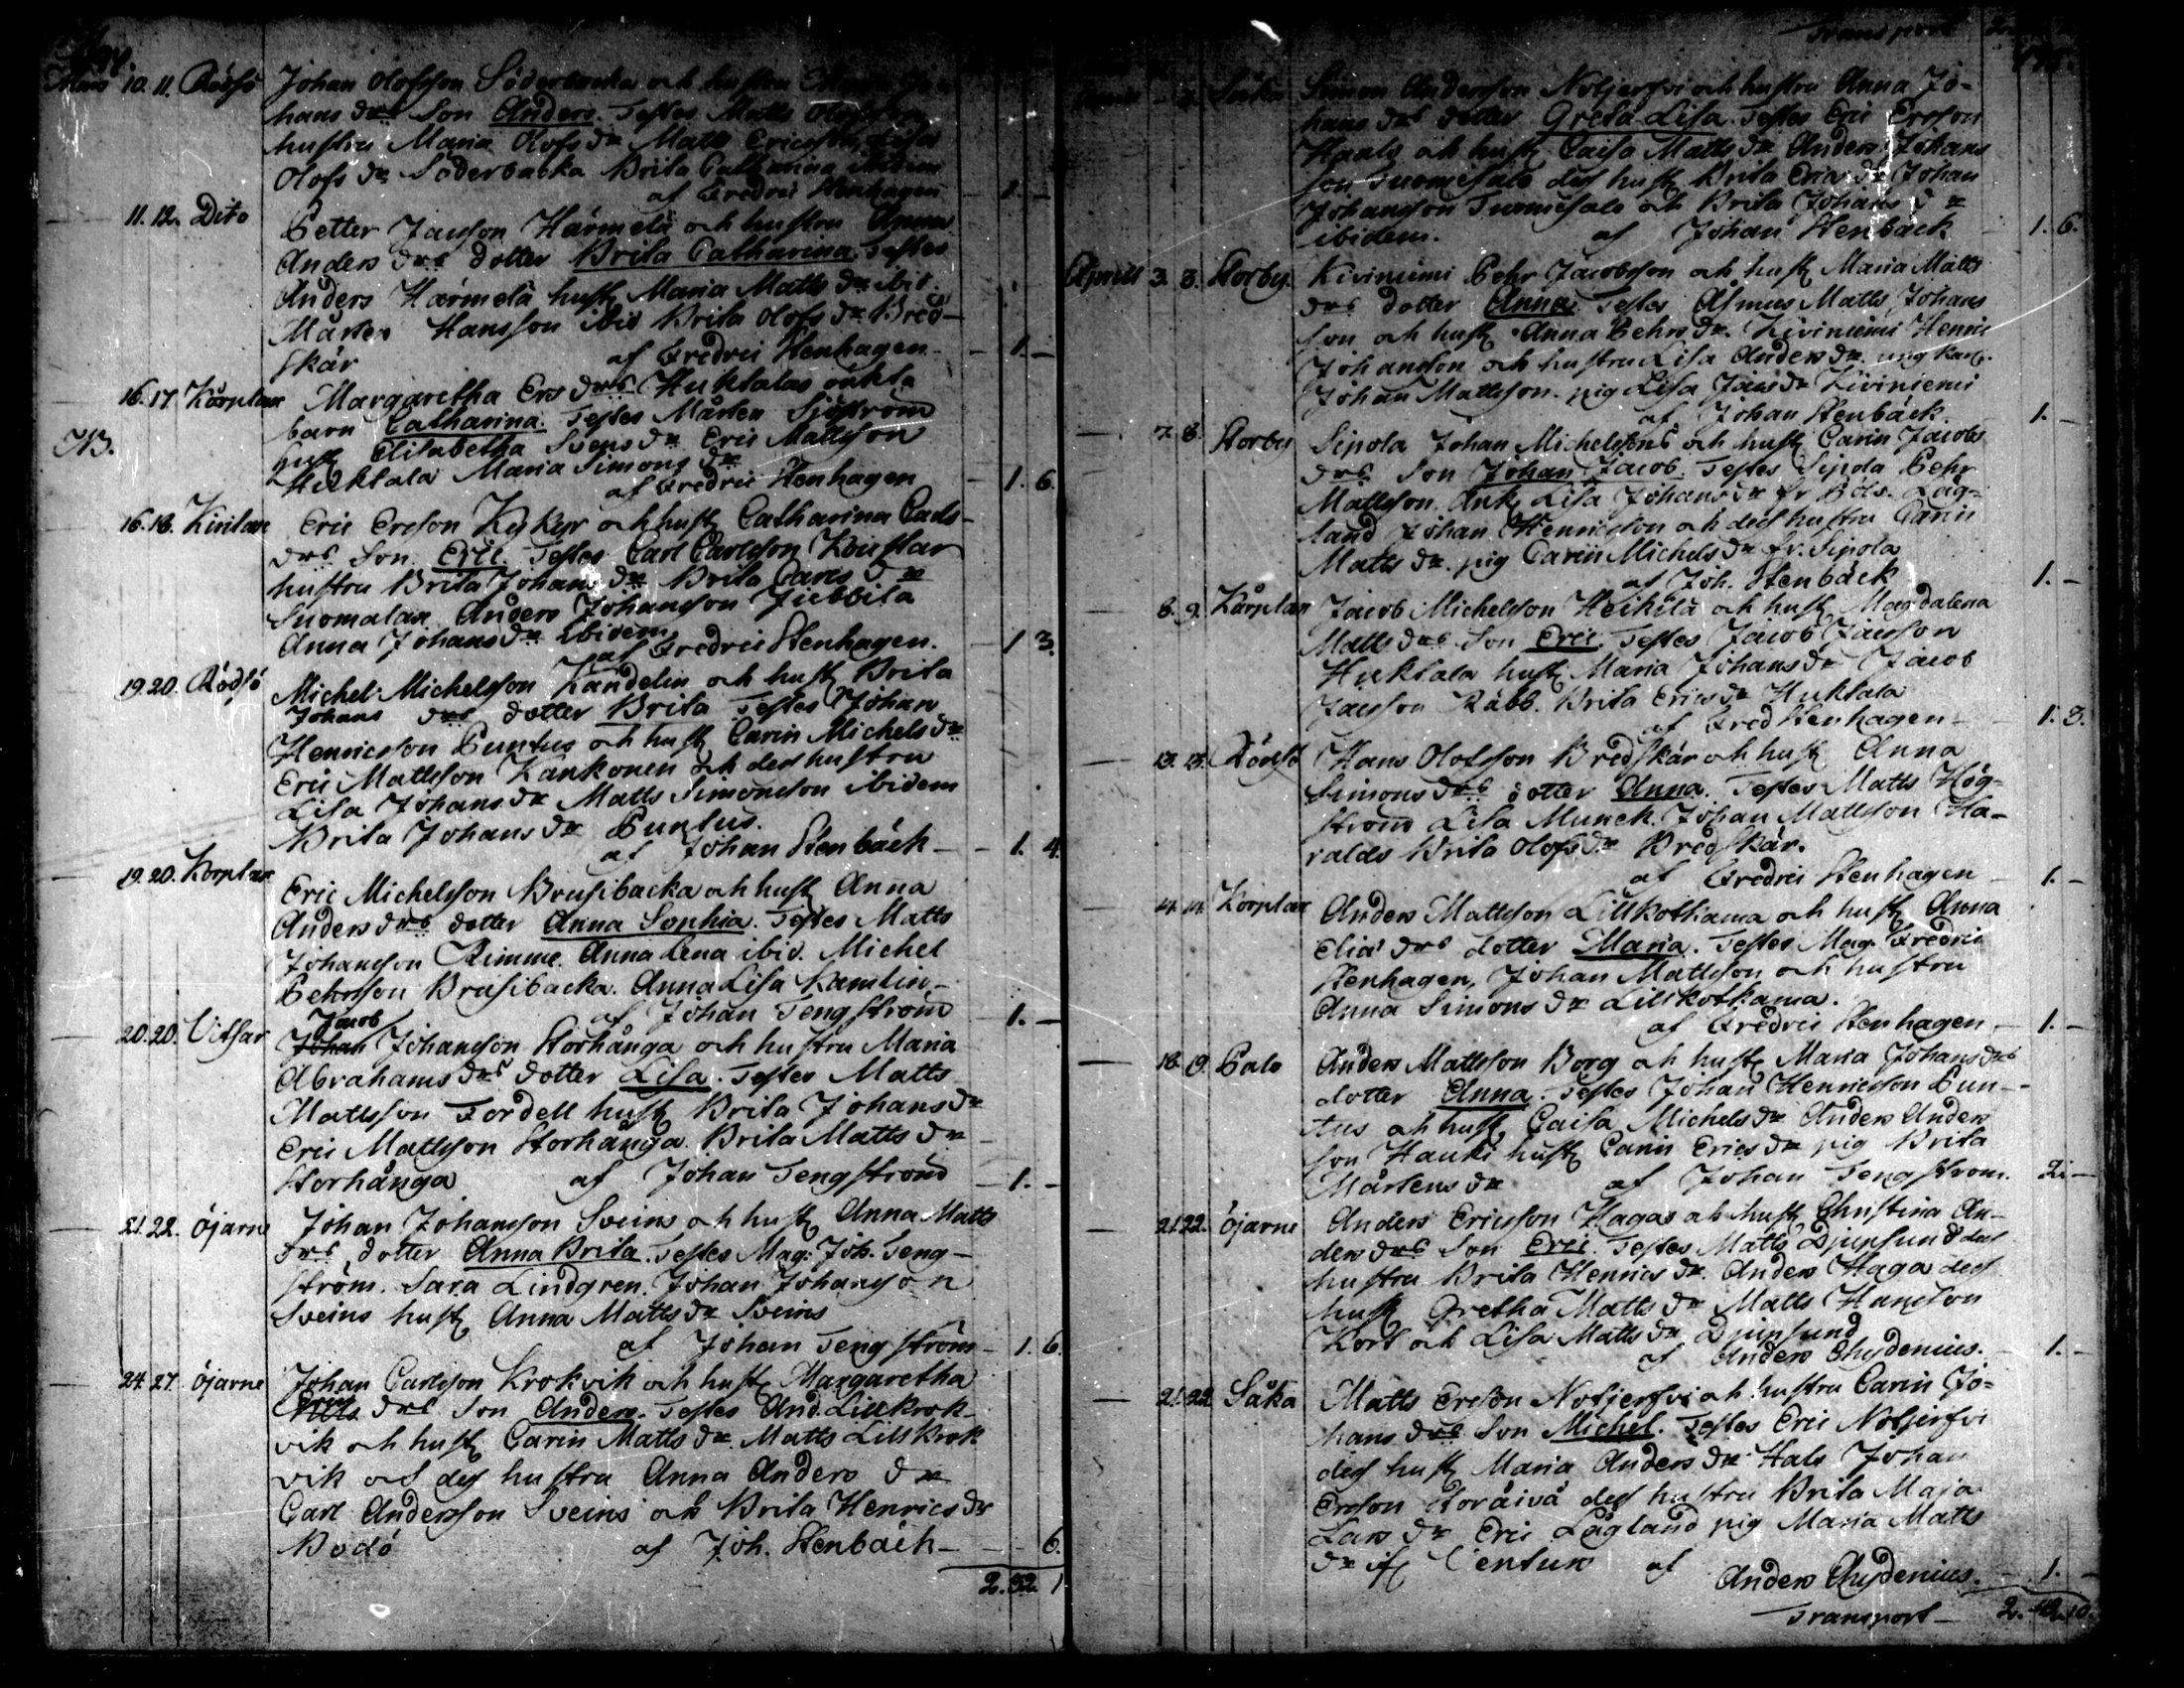 Mars 10. 11. Rödsö Johan Olofsson Söderbacka och hustru
hans drs Son Anders. Testes Matts
hustru Maria Olofs dr Matts Ericsson
Olofs dr Söderbacka Brita Catharina
af Fredric Stenhagen 1. –
11. 12. Dito Petter Jansson Härmelä och hustru Anna
Anders drs dotter Brita Catharina Testes
Anders Härmelä hust Maria Matts dr ibid.
Mårten Hansson ibid Brita Olofs dr Bred-
skär af Fredric Stenhagen – 1. –
16. 17 Kårplax Margaretha Ers drs Huktalas oäkta
NB. barn Catharina. Testes Mårten Sjöstrom
hust Elisabetha Svens dr Eric Mattsson
Huktala Maria Simons dr
af Fredric Stenhagen – 1. 6.
16. 18. Kirilax Eric Ersson Kykyr och hust Catharina Carls-
drs Son Eric. Testes Carl Carlsson
hustru Brita Johans dr Brita Carls dr
Suomalax Anders Johansson
Anna Johans dr ibidem
af Fredric Stenhagen. – 1 3.
19. 20. Rödsö Michel Michelsson Kandelin och hust Brita
Johans drs dotter Brita Testes Johan
Henricsson Puntus och hust Carin Michels dr
Eric Mattsson Kankonen och des hustru
Lisa Johans dr Matts Simonsson ibidem
Brita Johans dr Puntus.
af Johan Stenbäck – 1. 4.
19. 20. Korplax Eric Michelsson Brusibacka och hust Anna
Anders drs dotter Anna Sophia. Testes Matts
Johansson Rimme. Anna Lena ibid. Michel
Pehrsson Brusibacka. Anna Lisa Kamlin –
af Johan Tengstrom – 1. –
Jacob
20. 20. Vitsar Johan Johansson Storhånga och hustru Maria
Abrahams drs dotter Lisa. Testes Matts
Mattsson Fordell hust Brita Johans dr
Eric Mattsson Storhånga. Brita Matts dr
Storhånga af Johan Tengstrom – 1. –
21. 22. Öjarne Johan Johansson Sveins och hust Anna Matts
drs dotter Anna Brita. Testes Mag: Joh. Teng-
ström. Sara Lindgren. Johan Johansson
Sveins hust Anna Matts dr Sveins
af Johan Tengström – 1. 6.
24. 27. Öjarne Johan Carlsson Krokvik och hust Margaretha
drs Son Anders. Testes And. Lillkrok-
vik och hust Carin Matts dr. Matts Lillkrok
vik och des hustru Anna Anders dr
Carl Andersson Sveins och Brita Henrics dr
Bodö af Joh. Stenbäck – – 6.
2. 32. 1
Transport
Simon Andersson Notjerfvi och hustru Anna Jo-
hans drs dotter Greta Lisa. Testes Eric Ersson
och hust Caisa Matts dr Anders Johans
son Tuomesalo des hust Brita Erics dr Johan
Johansson Tuomesalo och Brita Johans dr
ibidem. af Johan Stenbäck – 1. 6.
Aprill 3. 3. Storby. Kiviniemi Pehr Jacobsson och hust Maria Matts
drs dotter Anna Testes Åsmus Matts Johans
son och hust Anna Pehrs dr. Kiviniemi Henric
Johansson och hustru Lisa Anders dr. ung karl.
Johan Mattsson. pig Lisa Jans dr Kiviniemi
af Johan Stenbäck – 1. –
7. 8. Storby Sipola Johan Michelssons och hust Carin Jacobs
drs Son Johan Jacob. Testes Sipola Pehr
Mattsson. Lisa Johans dr fr. Låg-
land Johan Henricsson och des hustru Carin
Matts dr. pig Carin Michels dr fr. Sipola
af Joh. Stenbäck 1. –
8. 9. Kårplax Jacob Michelsson Heikilä och hust Magdalena
Matts drs Son Eric. Testes Jacob Jacsson
Huktala hust Maria Johans dr Jacob
Jacsson Räbb. Brita Erics dr Huktala
af Fred Stenhagen – 1. 3.
13. 13. Rödsö Hans Olofsson Bredskär och hust Anna
Simons drs dotter Anna. Testes Matts Hög-
strom Lisa Munck. Johan Mattsson Ha-
ralds Brita Olofs dr Bredskär.
af Fredric Stenhagen – 1. –
14. 14. Korplax Anders Mattsson Lillkotkama och hust Anna
Eliæ drs dotter Maria. Testes Mag. Fredric
Stenhagen, Johan Mattsson och hustru
Anna Simons dr Lillkotkama.
af Fredric Stenhagen – 1. –
18. 19. Palo Anders Mattsson Borg och hust Maria Johans drs
dotter Anna. Testes Johan Henricsson Pun-
tus och hust Caisa Michels dr Anders Anders
son Hauki hust Carin Erics dr pig Brita
Mårtens dr af Johan Tengstrom. 2. –
21. 22. Öjarne Anders Ericsson Hagas och hust Christina An-
ders drs Son Eric. Testes Matts Djupsund des
hustru Brita Henrics dr. Anders Haga des
hust Gretha Matts dr Matts Hansson
Kort och Lisa Matts dr Djupsund
af Anders Chydenius. – 1. –
21. 22 Såka Matts Ersson Notjerfvi och hustru Carin Jo-
hans drs Son Michel. Testes Eric Notjerfvi
des hust Maria Anders dr Hals Johan
Ersson Storåivå des hustru Brita Maja
Lars dr Eric Lågland pig Maria Matts
dr Centurs af Anders Chydenius. – 1. –
Transport – 2. 42. 10.